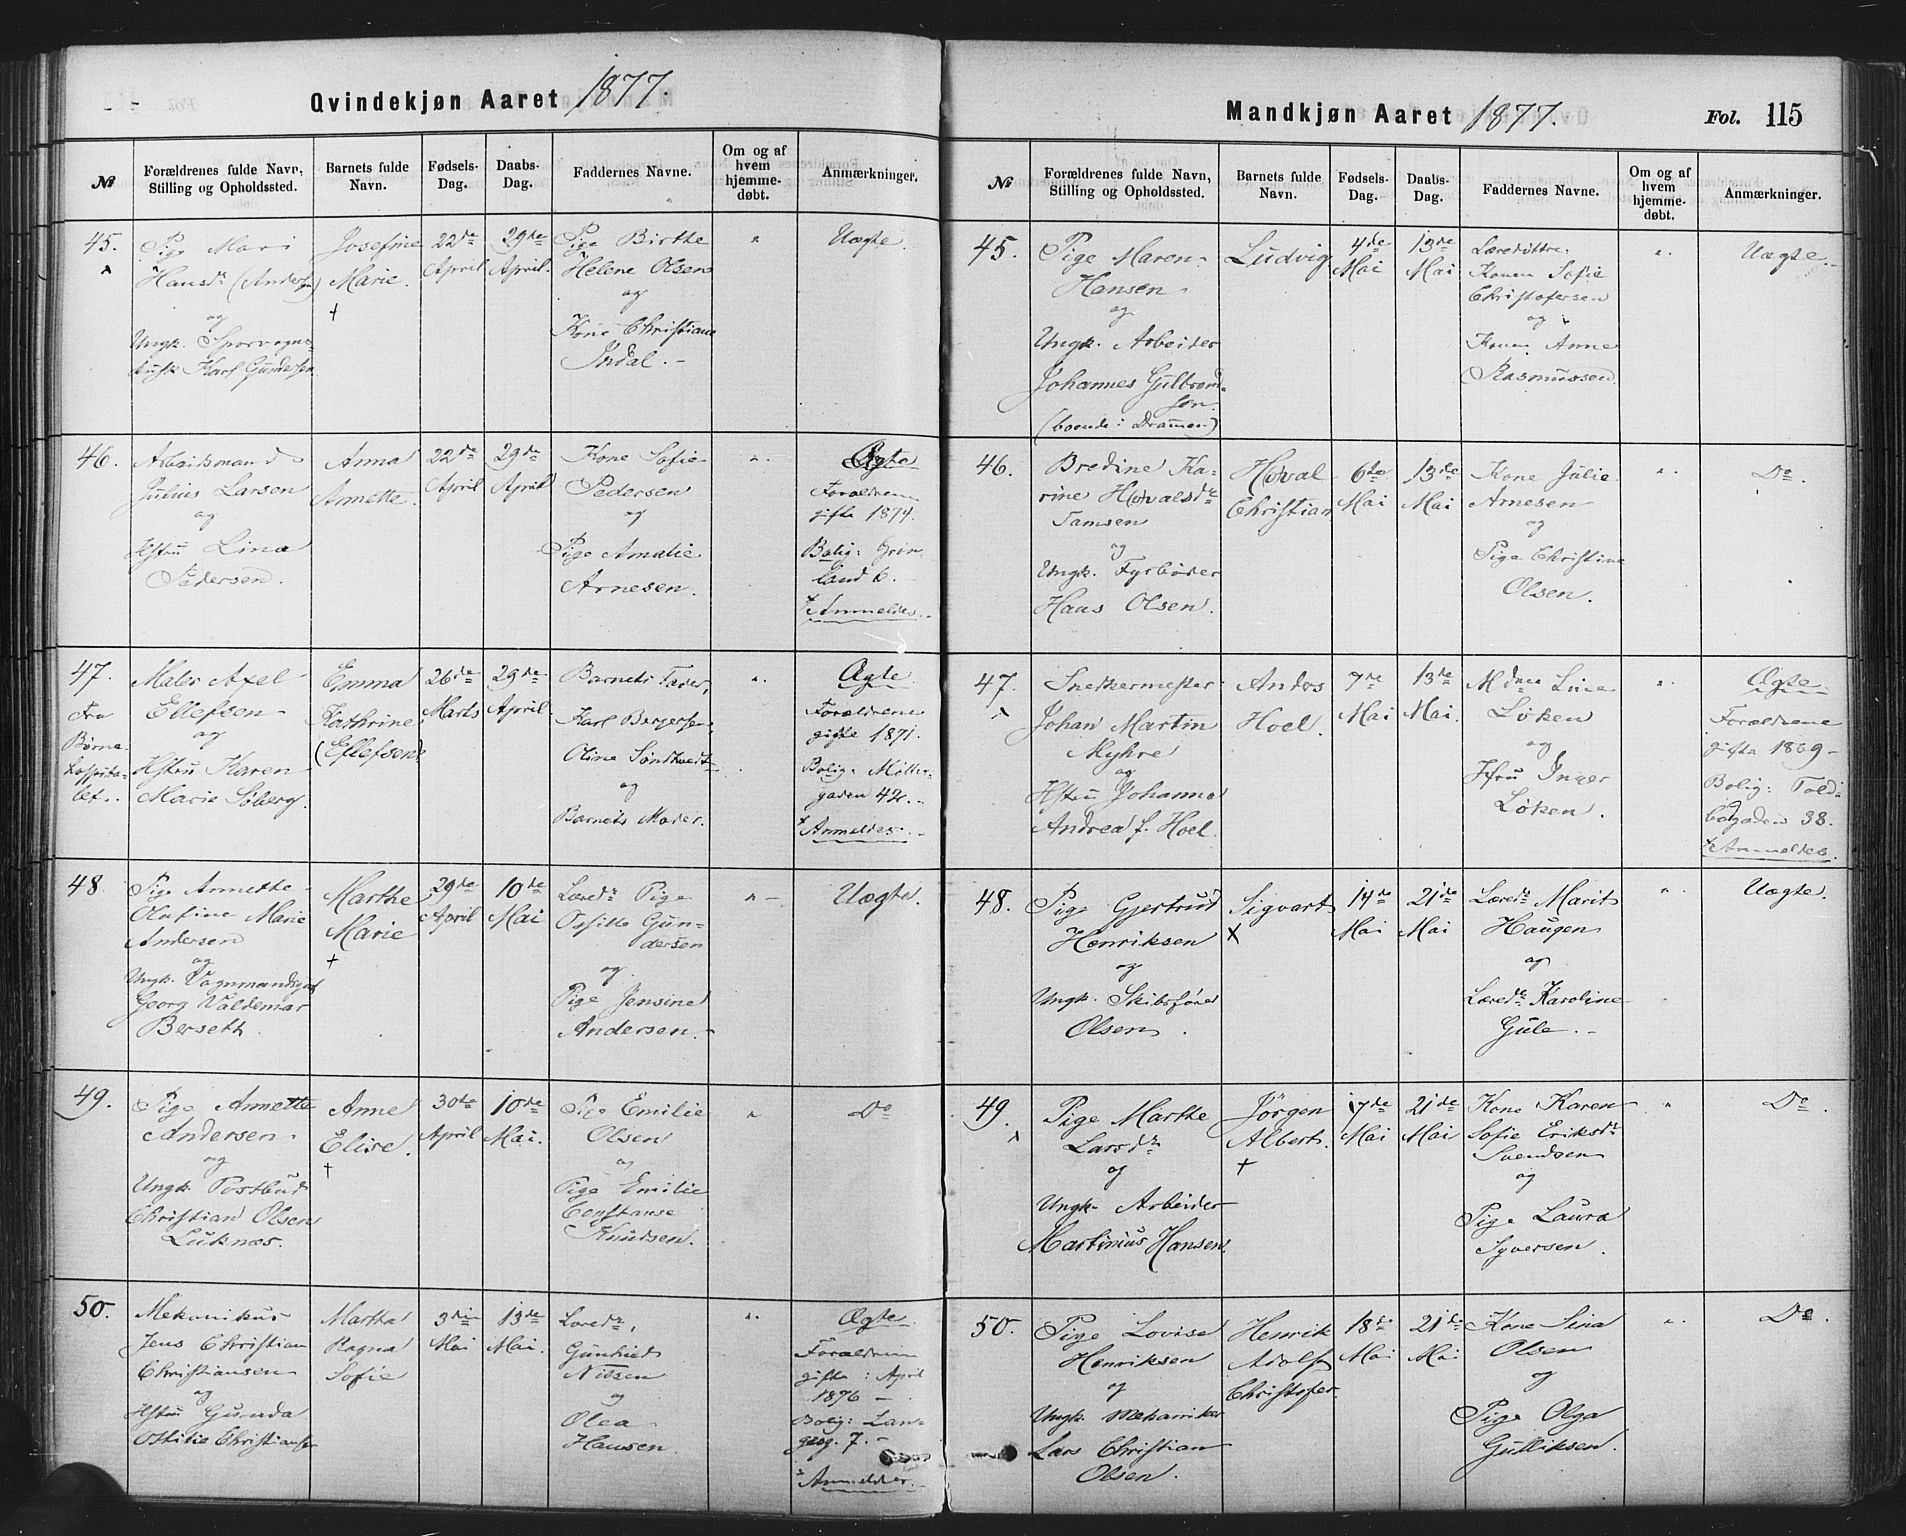 Qvindekjøn Aaret 1877.
№
Forældrenes fulde Navn,
Stilling og Opholdssted.
Barnets fulde
Navn.
Fødsels-
Dag.
Daabs-
Dag.
Faddernes Navne.
Om og af
hvem
hjemme-
døbt.
Anmærkninger.
45.
Pige Mari
Hansdr (Andersen)
og
Ungk. Sporvogns-
kusk Karl Gundersen
Josefine
Marie.
+
22de
April
29de
April.
Pige Birthe
Helene Olsen
og
Kone Christiane
Indal.
"
Uægte.
46.
Arbeidsmand
Julius Larsen
og
Hstru Lina
Pedersen.
Anna
Annette.
22de
April
29de
April
Kone Sofie
Pedersen
og
Pige Amalie
Arnesen.
"
Ægte
Forældrene
gifte 1874.
Bolig: Grøn
land 6.
Anmeldes.
47.
Fra
Børne
hospita-
let.
Maler Axel
Ellefsen
og
Hstru Karen
Marie Søberg.
Emma
Kathrine
(Ellefsen)
26de
Marts
29de
April
Barnets Fader,
Karl Bergersen,
Oline Sondtvedt
og
Barnets Moder.
"
Ægte
Forældrene
gifte 1871.
Bolig: Møller-
gaden 42.
Anmeldes.
48.
Pige Annette
Olufine Marie
Andersen
og
Ungk. Vognmandsgut
Georg Valdemar
Berseth.
Marthe
Marie
+
29de
April
10de
Mai
Læredr Pige
Gun-
dersen
og
Pige Jensine
Andersen.
"
Uægte.
49.
Pige Annette
Andersen
og
Ungk. Postbud
Christian Olsen
Luknæs.
Anne
Elise.
+
30de
April
10de
Mai.
Pige Emilie
Olsen
og
Pige Emilie
Constanse
Knudsen.
"
Do
50.
Mekanikus
Jens Christian
Christiansen
og
Hstru Gunda
Ottilie Christiansen
Martha
Ragna
Sofie
3die
Mai
13de
Mai.
Læredr,
Gunhild
Nilsen
og
Olea
Hansen.
"
Ægte
Forældrene
gifte i April
1876
Bolig: Lan-
geg. 7.
Anmeldes.
Mandkjøn Aaret 1877.
Fol. 115
№
Forældrenes fulde Navn,
Stilling og Opholdssted.
Barnets fulde
Navn.
Fødsels-
Dag.
Daabs-
Dag.
Faddernes Navne.
Om og af
hvem
hjemme-
døbt.
Anmærkninger.
45.
Pige Maren
Hansen
og
Ungk. Arbeider
Johannes Gulbrand-
sen
(boende i Drammen)
Ludvig
4de
Mai
13de
Mai
Konen Sofie
Christofersen
og
Konen Anne
Rasmussen.
"
Uægte.
46.
Bredine Ka-
rine Hovalsdr
Tamsen
og
Ungk. Fyrbøder
Hans Olsen.
Hoval
Christian
6te
Mai
13de
Mai
Kone Julie
Arnesen
og
Pige Christine
Olsen.
"
Do.
47.
Snekkermester
Johan Martin
Myhre
og
Hstru Johanne
Andrea f. Hoel.
Anders
Hoel.
7de
Mai
13de
Mai.
Mdme Line
Løken
og
Hfru Inger
Løken.
"
Ægte
Forældrene
gifte 1869
Bolig: Told-
bogaden 38.
Anmeldes.
48.
Pige Gjertrud
Henriksen
og
Ungk. Skibsfører
Olsen.
Sigvart
X
14de
Mai
21de
Mai
Læredr Marit
Haugen
og
Læredr Karoline
Gule.
"
Uægte.
49.
Pige Marthe
Larsdr
og
Ungk. Arbeider
Martinius Hansen.
Jörgen
Albert.
+
17de
Mai
21de
Mai
Kone Karen
Sofie Eriksdr
Svendsen
og
Pige Laura
Syversen.
"
Do.
50.
Pige Lovise
Henriksen
og
Ungk. Mekaniker
Lars Christian
Olsen.
Henrik
Adolf
Christofer.
18de
Mai
21de
Mai
Kone Lina
Olsen
og
Pige Olga
Gulliksen.
"
Do.